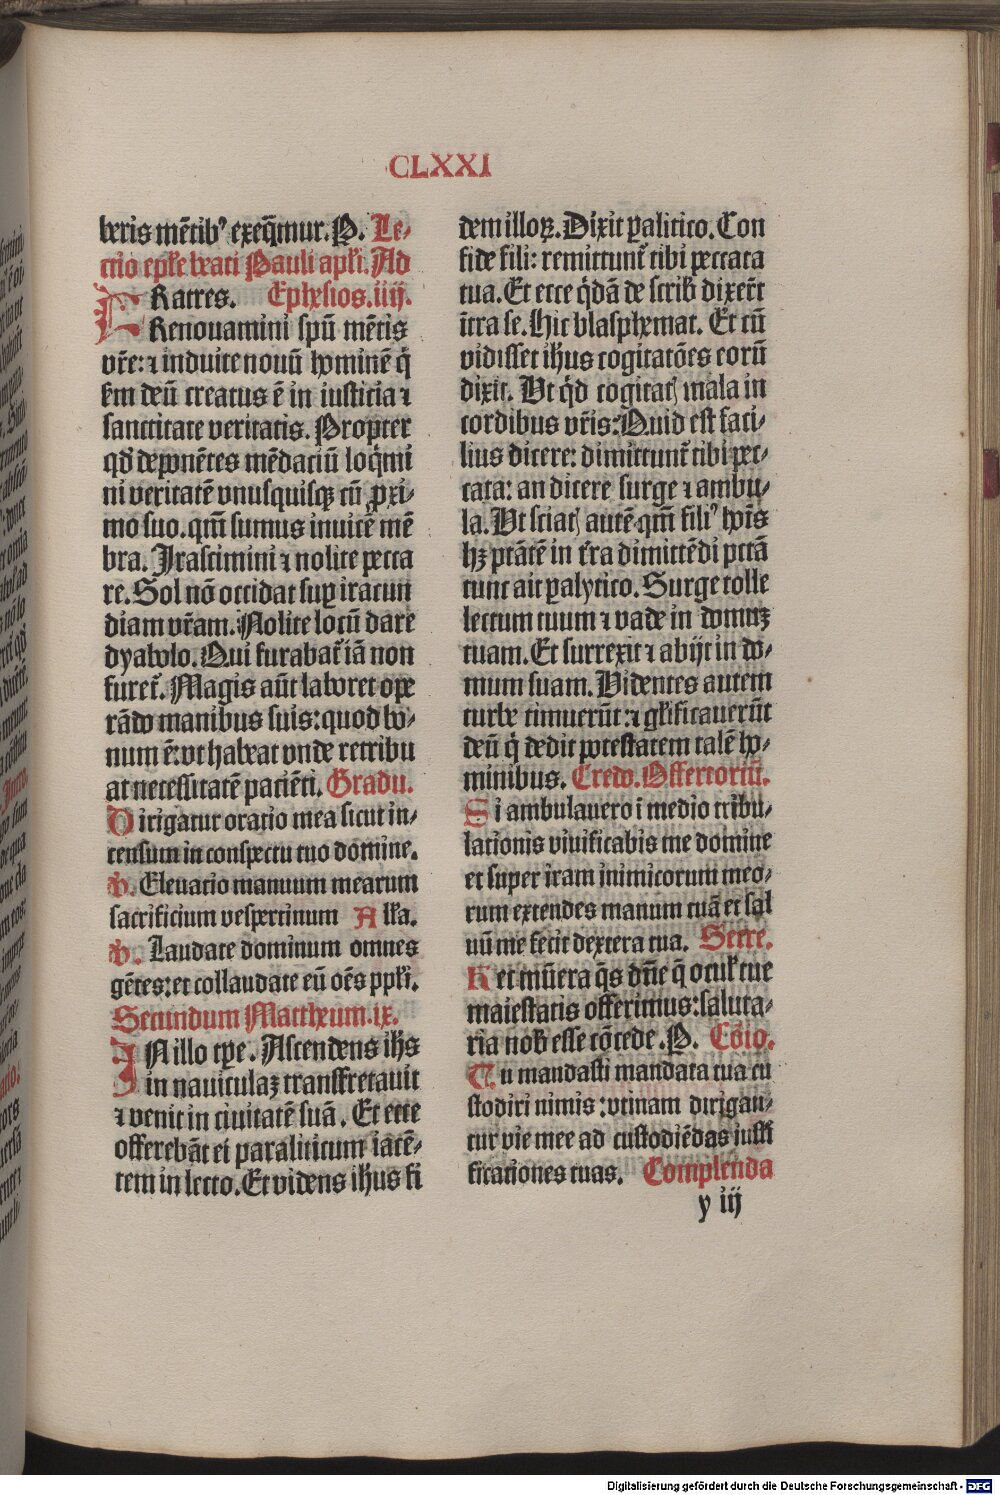 CLXXI
beris mētibꝰ exeq̄mur. P. Le-
ctio ep̄le beati Pauli apl̄i. Ad
FRatres. Ephesios. iiij.
Renouamini spū mētis
vr̄e: ⁊ induite nouū hominē q̇
scd̄m deū creatus ē in iusticia ⁊
sanctitate veritatis. Propter
qd̄ deponētes mēdaciū loq̇mi
ni veritatē vnusquisqꝫ cū ꝓxi-
mo suo. qm̄ sumus inuicē mē
bra. Irascimini ⁊ nolite pecca
re. Sol nō occidat suꝑ iracun
diam vr̄am. Nolite locū dare
dyabolo. Qui furabat᷑ iā non
furet᷑. Magis aūt laboret ope
rādo manibus suis: quod bo-
num ē: vt habeat vnde retribu
at necessitatē paciēti. Gradu.
Dirigatur oratio mea sicut in-
censum in conspectu tuo domine.
v. Eleuatio manuum mearum
sacrificium vespertinum Alla.
v. Laudate dominum omnes
gētes: et collaudate eū oēs ppl̄i.
Secundum Mattheum. ix.
IN illo tꝑe. Ascendens ih̄s
in nauiculaꝫ transfretauit
⁊ venit in ciuitatē suā. Et ecce
offerebāt ei paraliticum iacē-
tem in lecto. Et videns ih̄us fi
dem illoꝝ. Dixit ꝑalitico. Con
fide fili: remittunt᷑ tibi peccata
tua. Et ecce q̇dā de scrib̄ dixer̄t
ītra se. Hic blasphemat. Et cū
vidisset ih̄us cogitatōes eorū
dixit. Vt q̇d cogitatꝭ mala in
cordibus vr̄is: Quid est faci-
lius dicere: dimittunt᷑ tibi pec-
cata: an dicere surge ⁊ ambu-
la. Vt sciatꝭ autē qm̄ filiꝰ hoīs
hꝫ ptātē in t̄ra dimittēdi pctā
tunc ait ꝑalytico. Surge tolle
lectum tuum ⁊ vade in domuꝫ
tuam. Et surrexit ⁊ abijt in do-
mum suam. Videntes autem
turbe timuerūt: ⁊ gl̄ificauerūt
deū q̇ dedit potestatem talē ho-
minibus. Credo. Offertoriū.
Si ambulauero ī medio tribu-
lationis viuificabis me domine
et super iram inimicorum meo-
rum extendes manum tuā et sal
uū me fecit dextera tua. Secre.
Het mūera q̄s dn̄e q̄ ocul̄ tue
maiestatis offerimus: saluta-
ria nob̄ esse cōcede. P. Cōio.
Tu mandasti mandata tua cu
stodiri nimis: vtinam dirigan-
tur vie mee ad custodiēdas iusti
ficationes tuas. Complenda
y iij
Digitalisierung gefördert durch die Deutsche Forschungsgemeinschaft - DFG